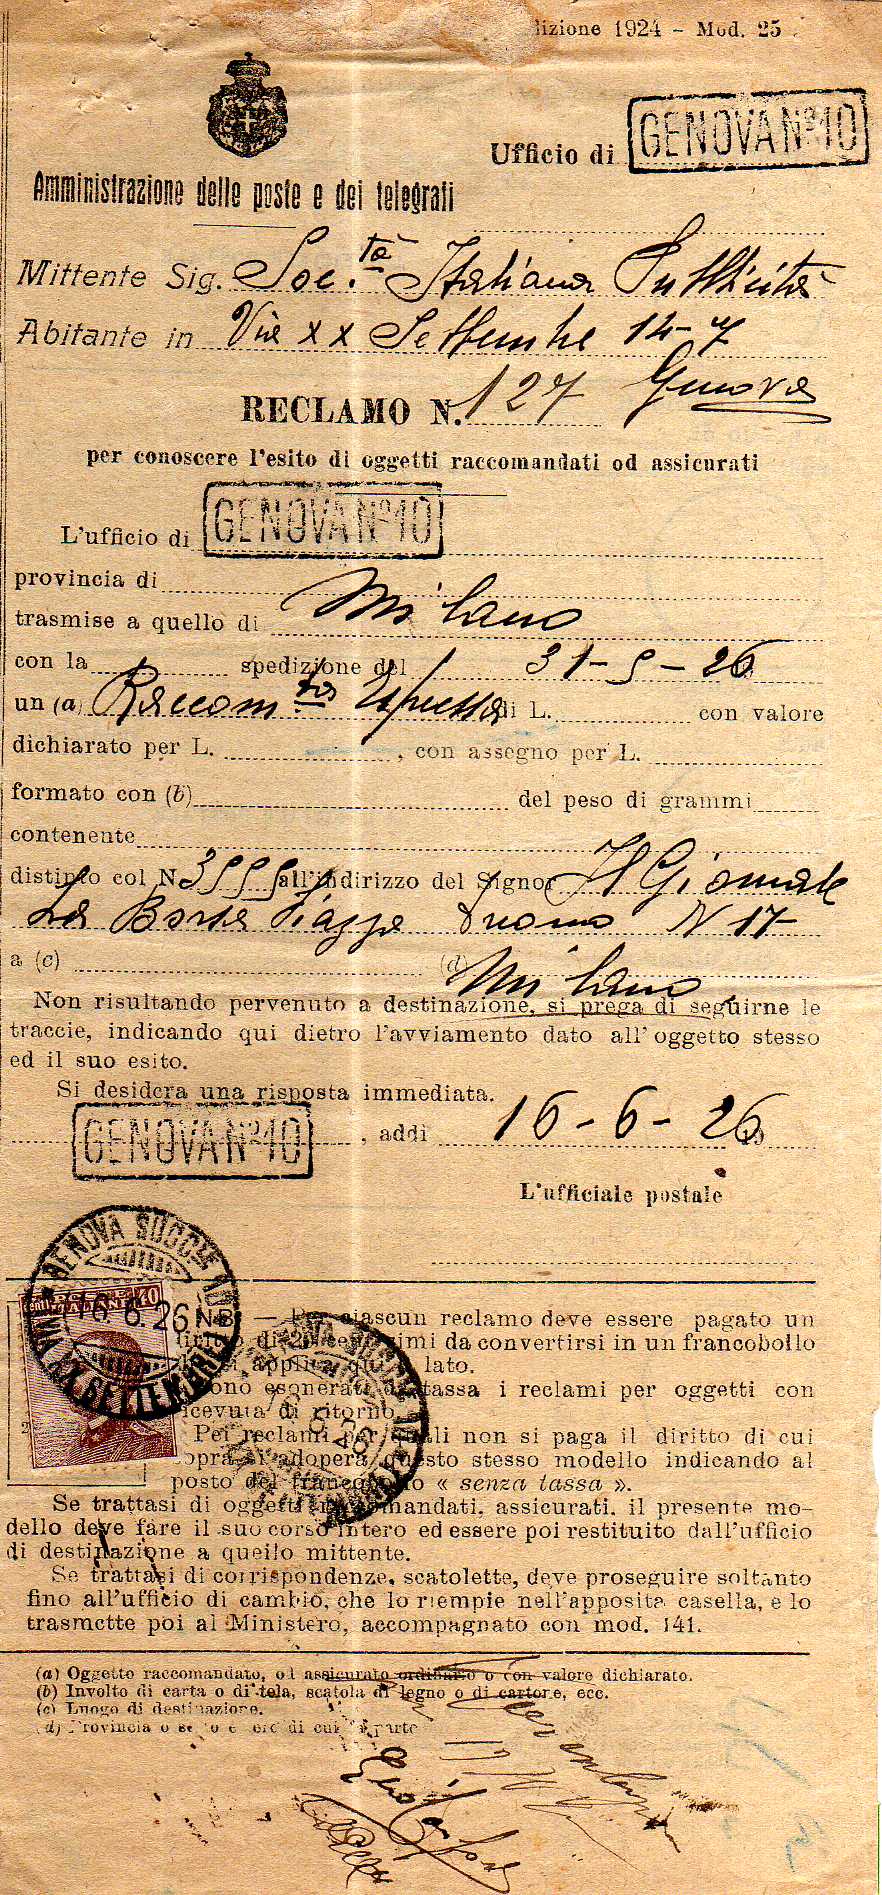 dizione 1924 - Mod. 25
Ufficio di GENOVA Nº 10
Amministrazione delle poste e dei telegrafi
Mittente Sig. Soc.tà Italiana Pubblicità
Abitante in Via XX Settembre 14-7
Genova
RECLAMO N. 127
per conoscere l'esito di oggetti raccomandati od assicurati
L'ufficio di GENOVA Nº 10
provincia di
trasmise a quello di Milano
con la spedizione del 31-5-26
un (a) Raccom.ta Espressa di L. con valore
dichiarato per L. , con assegno per L.
formato con (b) del peso di grammi
contenente
distinto col N. 3555 all'indirizzo del Signor Il Giornale
La Borsa Piazza Duomo N 17
a (c) (d) Milano
Non risultando pervenuto a destinazione, si prega di seguirne le
traccie, indicando qui dietro l'avviamento dato all'oggetto stesso
ed il suo esito.
Si desidera una risposta immediata.
GENOVA Nº 10 , addì 16-6-26
L'ufficiale postale
GENOVA SUCC.LE 10
16.6.26
XX SETTEMBRE
40
NB. — Per ciascun reclamo deve essere pagato un
diritto di centesimi da convertirsi in un francobollo
si applica qui a lato.
Sono esonerati da tassa i reclami per oggetti con
ricevuta di ritorno.
Pei reclami per quali non si paga il diritto di cui
sopra si adopera questo stesso modello indicando al
posto del francobollo « senza tassa ».
Se trattasi di oggetti raccomandati, assicurati, il presente mo-
dello deve fare il suo corso intero ed essere poi restituito dall'ufficio
di destinazione a quello mittente.
Se trattasi di corrispondenze, scatolette, deve proseguire soltanto
fino all'ufficio di cambio, che lo riempie nell'apposita casella, e lo
trasmette poi al Ministero, accompagnato con mod. 141.
(a) Oggetto raccomandato, od assicurato ordinario o con valore dichiarato.
(b) Involto di carta o di tela, scatola di legno o di cartone, ecc.
(c) Luogo di destinazione.
(d) Provincia o stato estero di cui fa parte